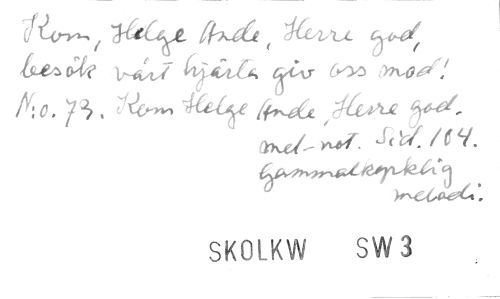 Kom, Helge Ande, Herre god,
besök vårt hjärta giv oss mod!
N:o. 73. Kom Helge Ande, Herre god.
mel-not. Sid. 104.
Gammalkyrklig
melodi.
SKOLKW SW 3